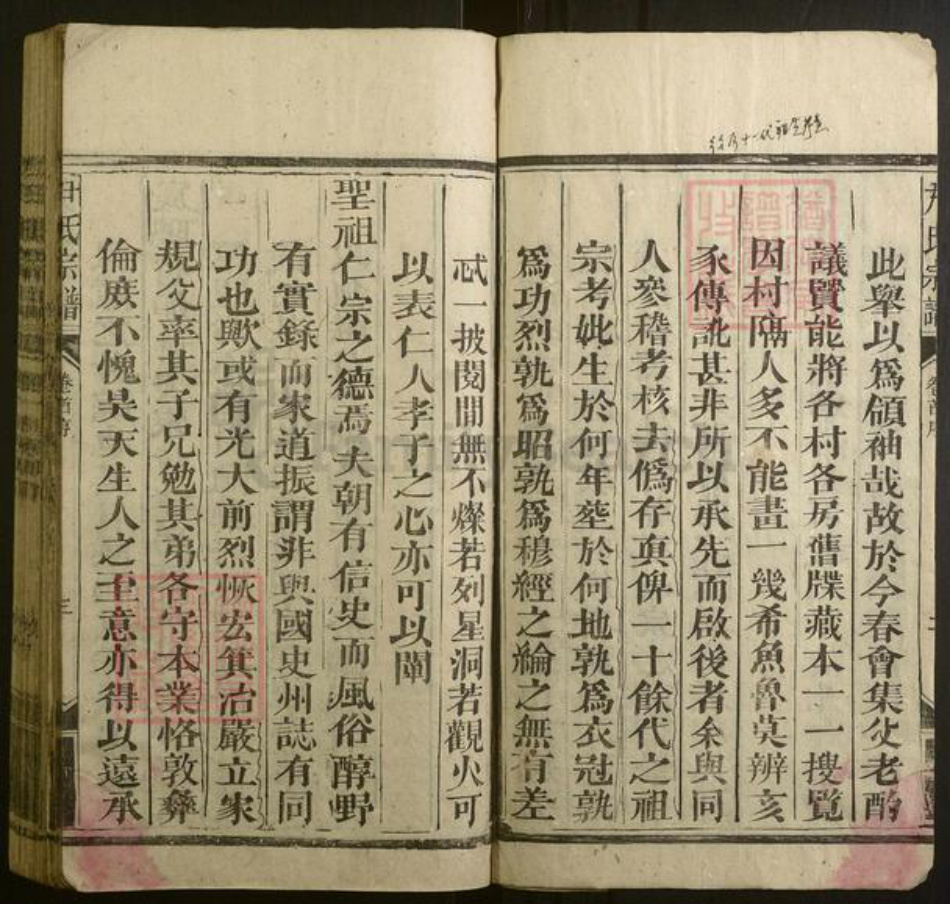 此舉以爲領袖哉故於今春會集父老酌
議賢能將各村各房舊牒藏本一一搜覽
因村隔人多不能畫一幾希魚魯莫辨亥
豕傳訛甚非所以承先而啟後者余與同
人叅稽考核去僞存真俾一十餘代之祖
宗考妣生於何年塟於何地孰爲衣冠孰
爲功烈孰爲昭孰爲穆經之綸之無有差
忒一披閱間無不燦若列星洞若觀火可
以表仁人孝子之心亦可以闡
聖祖仁宗之德焉夫朝有信史而風俗醇野
有實錄而家道振謂非與國史州誌有同
功也歟或有光大前烈恢宏箕治嚴立家
規父率其子兄勉其弟各守本業恪敦彝
倫庶不愧昊天生人之至意亦得以遠承
尹氏宗譜
卷首序
三